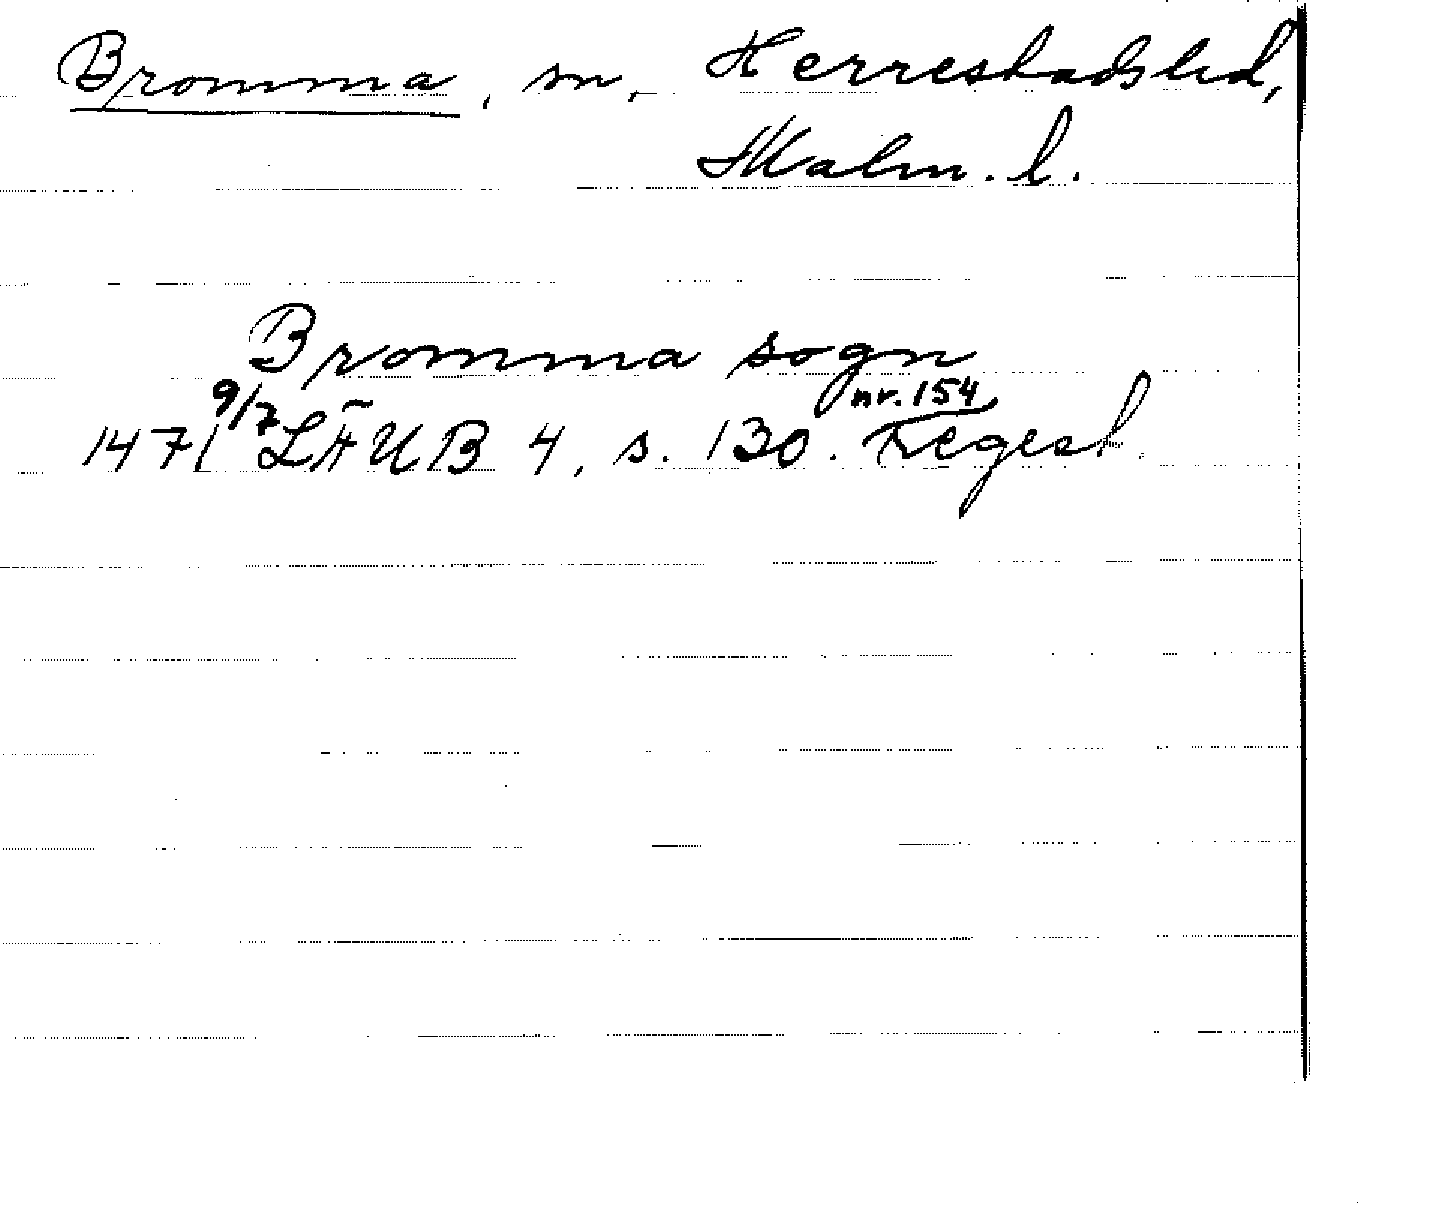 Bromma, sn, Herrestads hd,
Malm. l.
Bromma sogn
1471 9/7 LÄUB 4, s. 130. nr. 154 Regest.